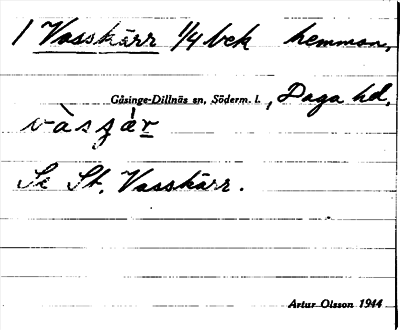 1 Vasskärr 1/4 bek hemman,
Gåsinge-Dillnäs sn, Söderm. l., Daga hd,
Se St. Vasskärr.
Artur Olsson 1944